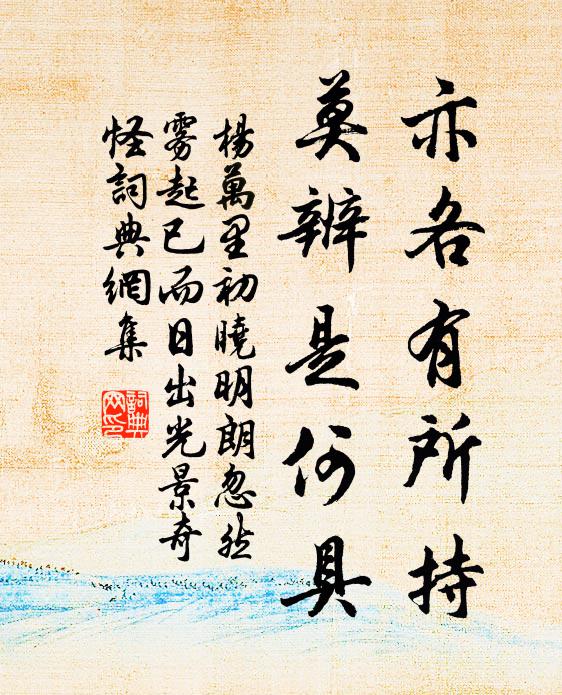 亦各有所持
莫辨是何具
楊萬里初曉明朗忽然
雾起已而日出光景奇
怪詞典網集
詞典
网印